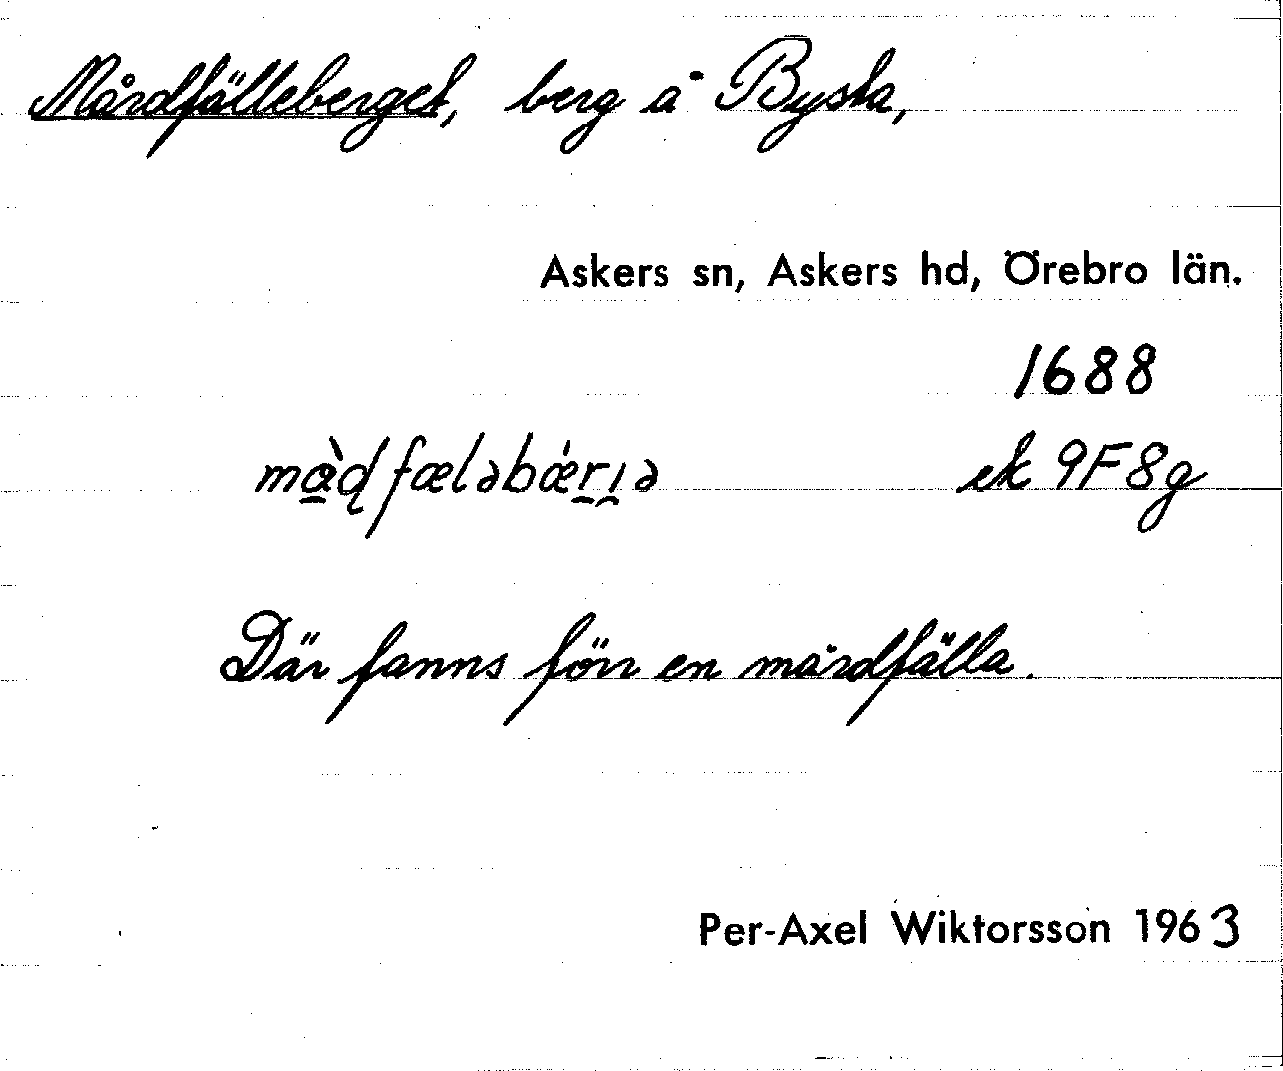 Mårdfälleberget, berg å Bysta,
Askers sn, Askers hd, Örebro län.
1688
mà̲ḍfæləbǽr̲ı̯ə ek 9F8g
Där fanns förr en mårdfälla.
Per-Axel Wiktorsson 1963